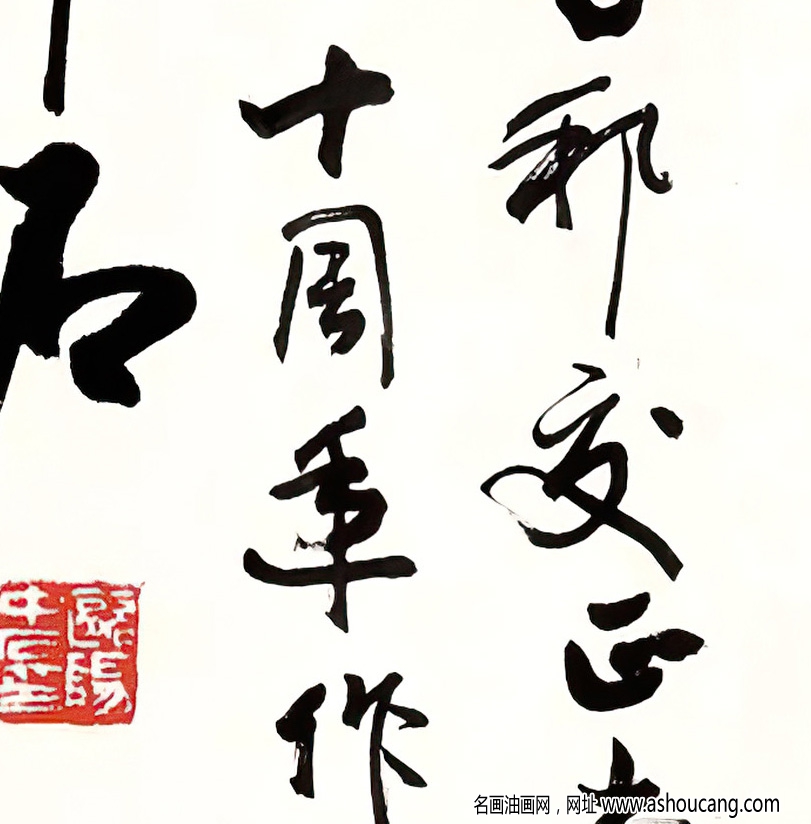 邪爱正古
十周年作
石
欧阳中石
名画油画网，网址 www.ashoucang.com